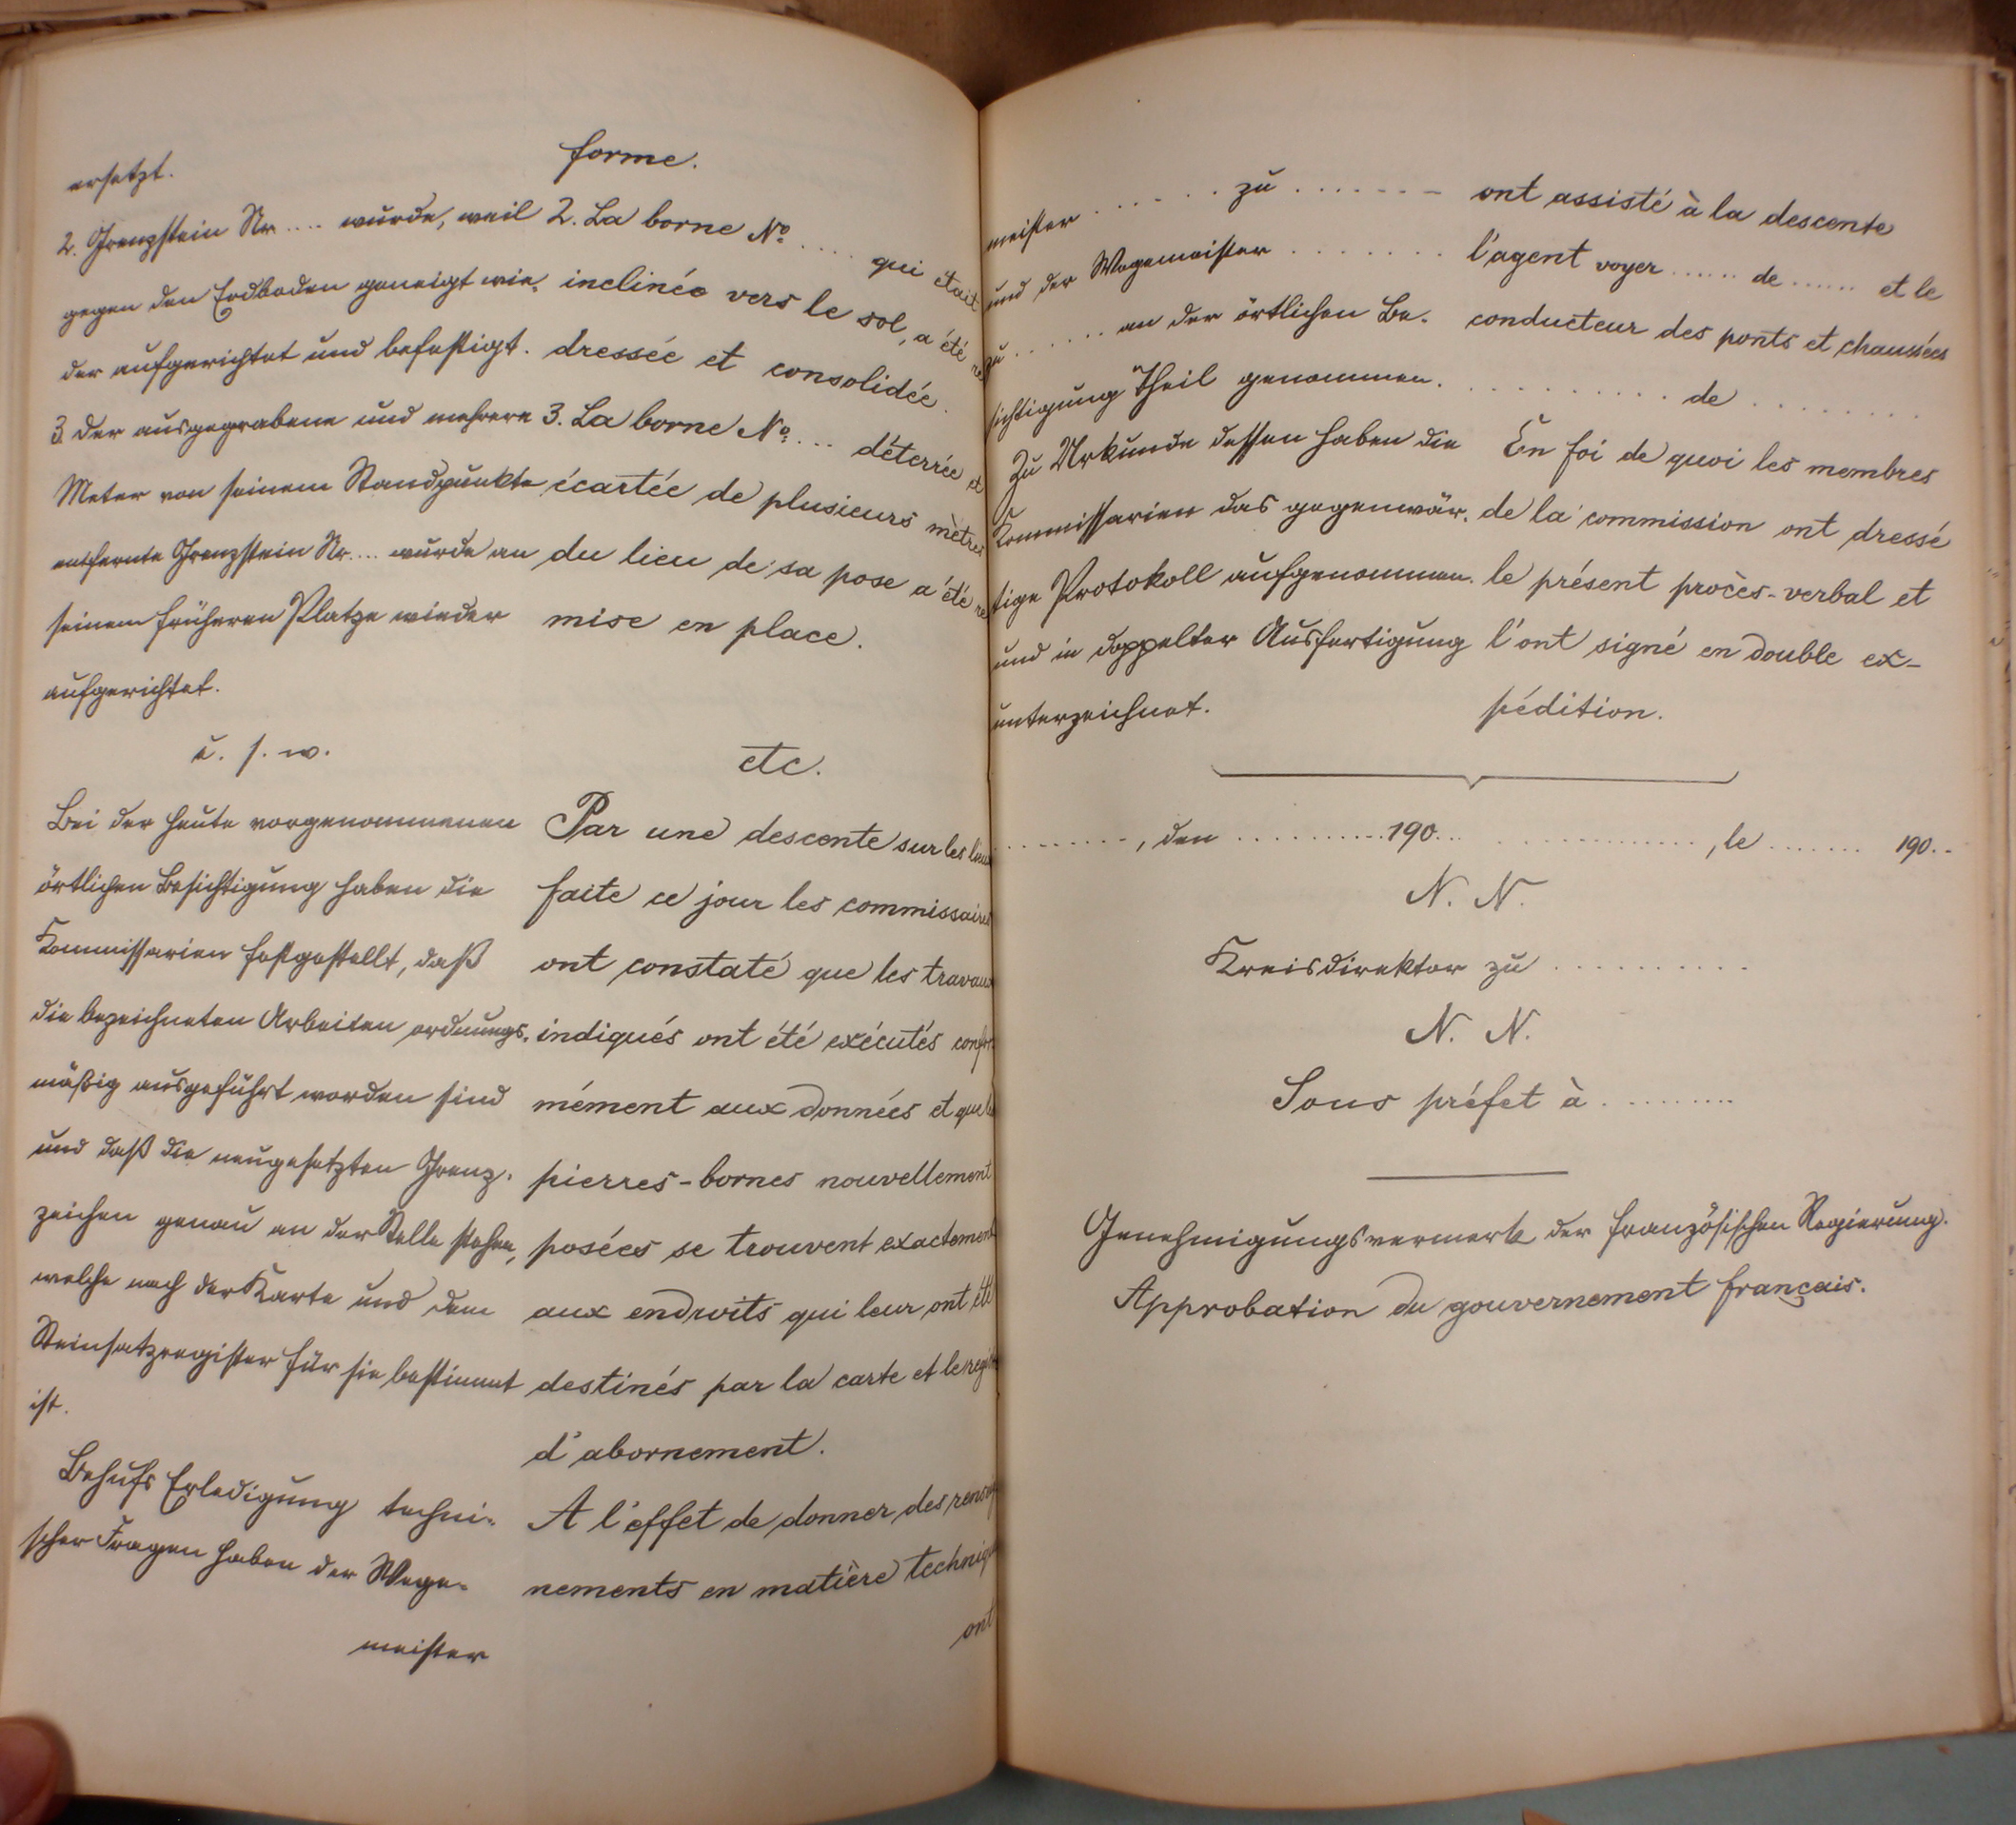 ersetzt.
2. Grenzstein Nr .... wurde, weil
gegen den Erdboden geneigt wie-
der aufgerichtet und befestigt.
3. der ausgegrabene und mehrere
Meter von seinem Standpunkte
entfernte Grenzstein Nr.... wurde an
seinem früheren Platze wieder
aufgerichtet.
u. s. w.
Bei der heute vorgenommenen
örtlichen Besichtigung haben die
Kommissarien festgestellt, daß
die bezeichneten Arbeiten ordnungs-
mäßig ausgeführt worden sind
und daß die neugesetzten Grenz-
zeichen genau an der Stelle stehen,
welche nach der Karte und dem
Steinsatzregister für sie bestimmt
ist.
Behufs Erledigung techni-
scher Fragen haben der Wege-
meister
forme.
2. La borne No. .... qui était
inclinée vers le sol, a été re
dressée et consolidée.
3. La borne No. ... déterrée et
écartée de plusieurs mètres
du lieu de sa pose a été re
mise en place.
etc.
Par une descente sur les lieux
faite ce jour les commissaires
ont constaté que les travaux
indiqués ont été exécutés confor
mément aux données et que les
pierres-bornes nouvellement
posées se trouvent exactement
aux endroits qui leur ont été
destinés par la carte et le
d'abornement.
A l'effet de donner des
nements en matière
ont
meister ...... zu .......
und der Wegemeister .......
zu ...... an der örtlichen Be-
sichtigung Theil genommen.
Zu Urkunde dessen haben die
Kommissarien das gegenwär-
tige Protokoll aufgenommen
und in doppelter Ausfertigung
unterzeichnet.
ont assisté à la descente
l'agent voyer ...... de ...... et le
conducteur des ponts et chaussées
.......... de ........
En foi de quoi les membres
de la commission ont dressé
le présent procès-verbal et
l'ont signé en double ex-
pédition.
........, den ..........190... .............., le ....... 190..
N. N.
Kreisdirektor zu ..........
N. N.
Sous préfet à .........
Genehmigungsvermerk der französischen Regierung.
Approbation du gouvernement français.